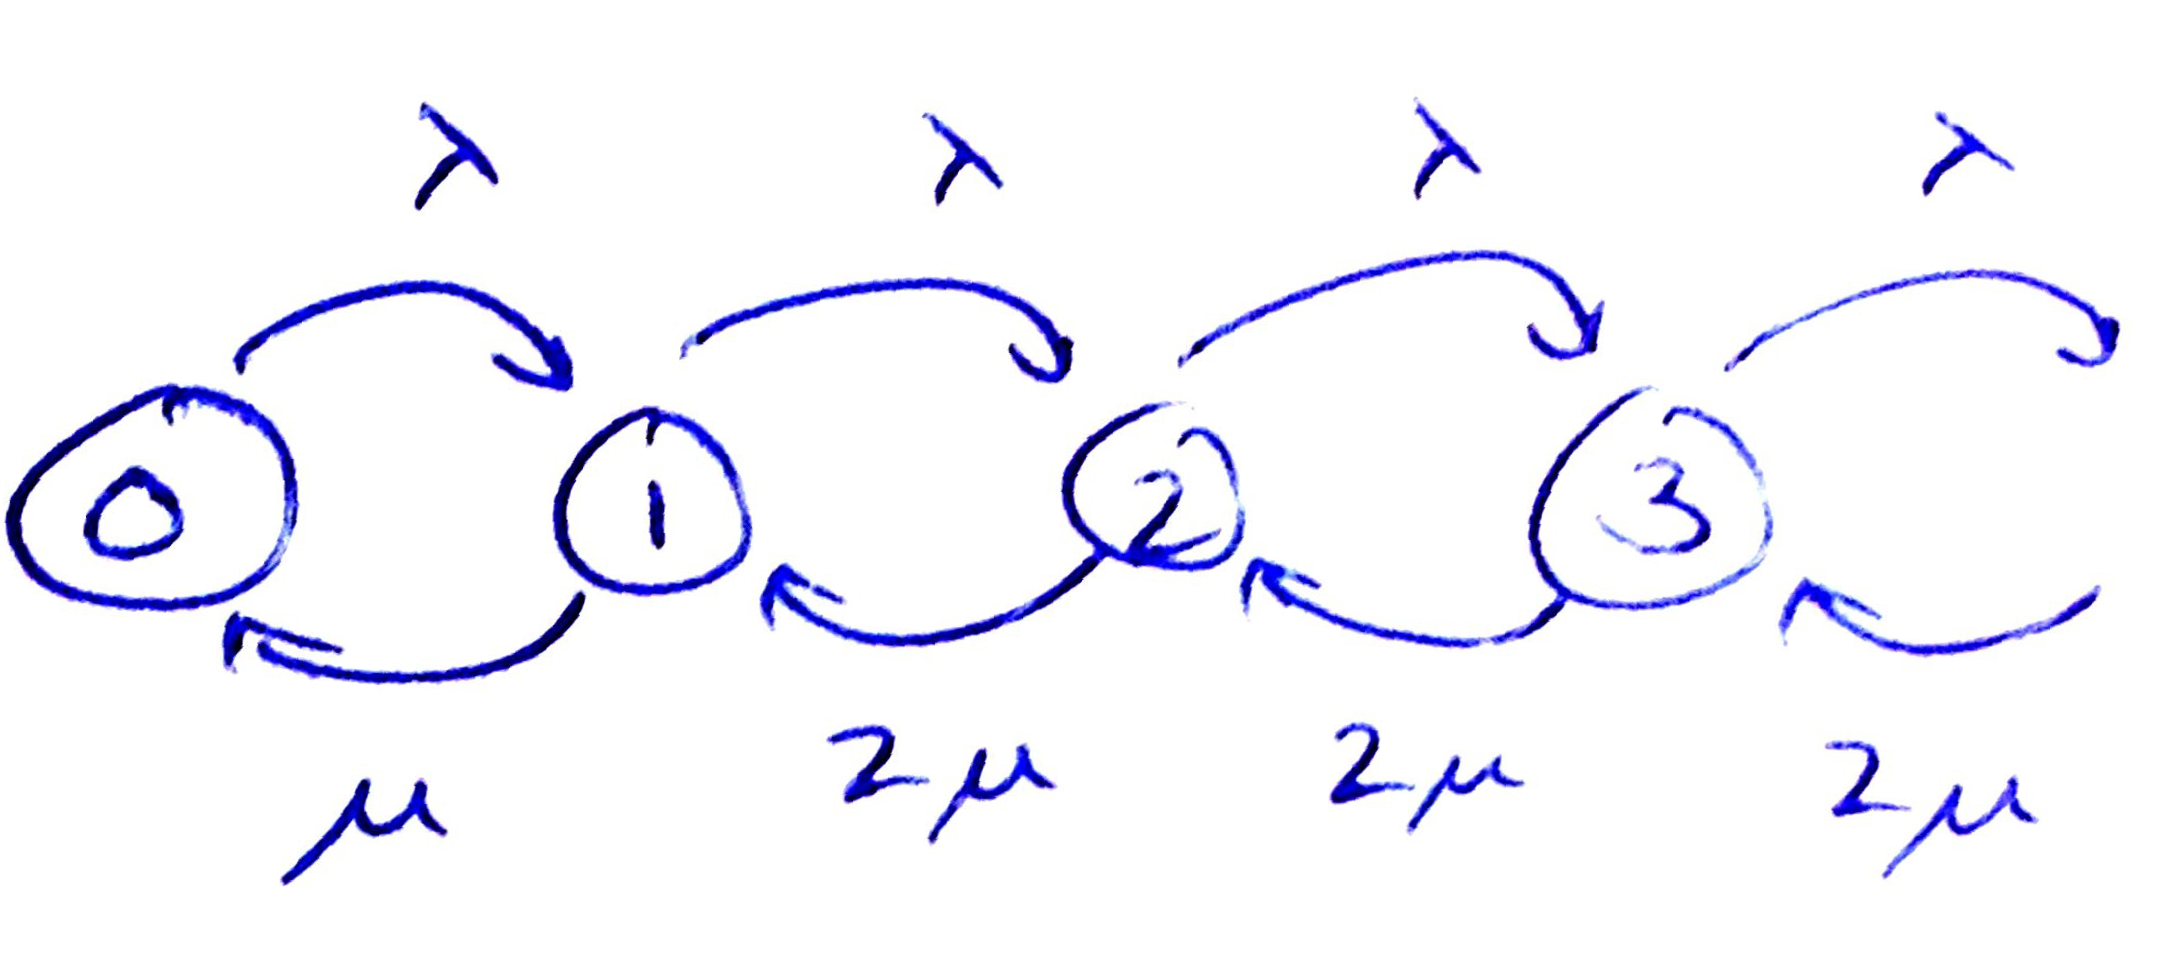 λ λ λ λ
0 1 2 3
μ 2μ 2μ 2μ